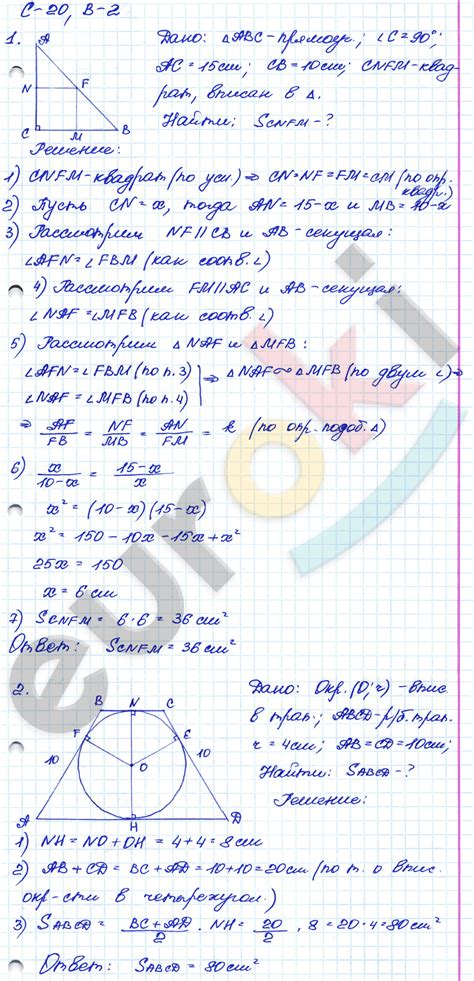 С-20, В-2
1.
A
N
F
C
M
B
Дано: △ABC-прямоуг.; ∠C=90°;
AC=15см; CB=10см; CNFM-квад-
рат, вписан в △.
Найти: SCNFM-?
Решение:
1) CNFM-квадрат (по усл) ⇒ CN=NF=FM=CM (по опр.
квадр.)
2) Пусть CN=x, тогда AN=15-x и MB=10-x
3) Рассмотрим NF∥CB и AB-секущая:
∠AFN=∠FBM (как соотв.∠)
4) Рассмотрим FM∥AC и AB-секущая:
∠NAF=∠MFB (как соотв.∠)
5) Рассмотрим △NAF и △MFB:
∠AFN=∠FBM (по п.3)
∠NAF=∠MFB (по п.4) ⇒ △NAF∼△MFB (по двум ∠) ⇒
⇒ AF/FB = NF/MB = AN/FM = k (по опр. подоб.△)
6) x/10-x = 15-x/x
x²=(10-x)(15-x)
x²=150-10x-15x+x²
25x=150
x=6см
7) SCNFM=6·6=36см²
Ответ: SCNFM=36см²
2.
B N C
F E
10 10
O
A H D
Дано: Окр.(O;r)-впис.
в трап.; ABCD-р/б.трап.
r=4см; AB=CD=10см;
Найти: SABCD-?
Решение:
1) NH=NO+OH=4+4=8см
2) AB+CD=BC+AD=10+10=20см (по т. о впис.
окр-сти в четырехугол.)
3) SABCD = BC+AD/2 · NH = 20/2 · 8=20·4=80см²
Ответ: SABCD=80см²
euroki